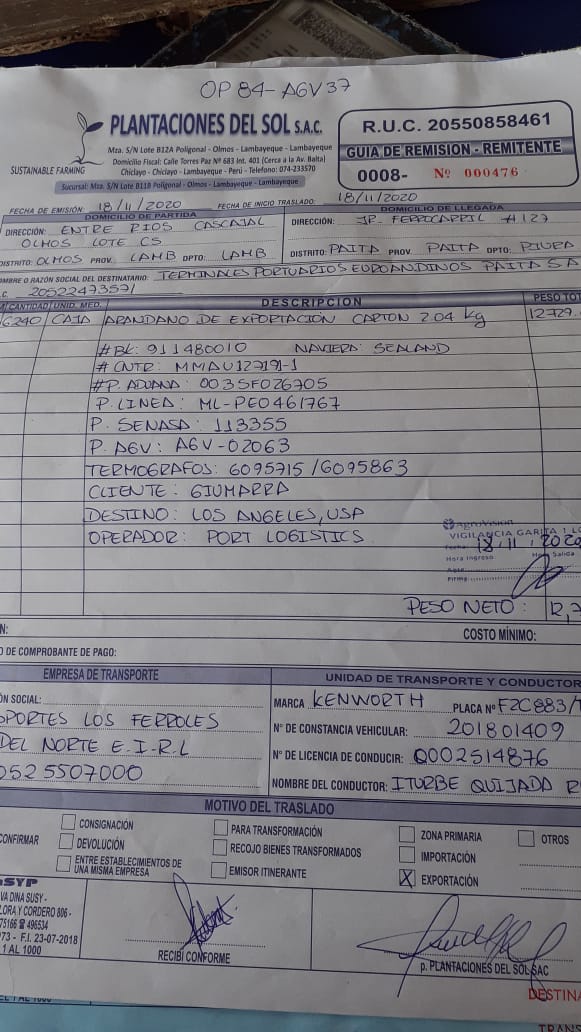 OP 84-AGV37
PLANTACIONES DEL SOL S.A.C.
Mza. S/N Lote B12A Poligonal - Olmos - Lambayeque - Lambayeque
Domicilio Fiscal: Calle Torres Paz Nº 683 Int. 401 (Cerca a la Av. Balta)
Chiclayo - Chiclayo - Lambayeque - Perú - Telefono: 074-233570
SUSTAINABLE FARMING
Sucursal: Mza. S/N Lote B11B Poligonal - Olmos - Lambayeque - Lambayeque
R.U.C. 20550858461
GUIA DE REMISION - REMITENTE
0008- Nº 000476
FECHA DE EMISIÓN: 18/11/2020 FECHA DE INICIO TRASLADO: 18/11/2020
DOMICILIO DE PARTIDA
DIRECCIÓN: ENTRE RIOS CASCAJAL
OLMOS LOTE CS
DISTRITO: OLMOS PROV. LAMB DPTO: LAMB
DOMICILIO DE LLEGADA
DIRECCIÓN: JR. FERROCARRIL #127
DISTRITO: PAITA PROV. PAITA DPTO: PIURA
OMBRE O RAZÓN SOCIAL DEL DESTINATARIO: TERMINALES PORTUARIOS EUROANDINOS PAITA SA
.C. 20522473571
CANTIDAD UNID. MED. DESCRIPCION PESO TOT
6240 CAJA ARANDANO DE EXPORTACIÓN CARTON 2.04 Kg 12729.
#BK: 911480010 NAVIERA: SEALAND
# CNTR: MMAU127191-1
#P. ADUANA: 0035F026705
P. LINEA: ML-PE0461767
P. SENASA: 113355
P. AGV: AGV-02063
TERMOGRAFOS: 6095715 /6095863
CLIENTE: GIUMARRA
DESTINO: LOS ANGELES, USA
OPERADOR: PORT LOGISTICS
AgroVision
VIGILANCIA GARITA 1
Fecha: 18/11/2020
Hora Ingreso Hora Salida
Firma
PESO NETO: 12,7
N:
COSTO MÍNIMO:
O DE COMPROBANTE DE PAGO:
EMPRESA DE TRANSPORTE
ÓN SOCIAL:
SPORTES LOS FERROLES
DEL NORTE E.I.R.L
0525507000
UNIDAD DE TRANSPORTE Y CONDUCTOR
MARCA KENWORTH PLACA Nº F2C883/
Nº DE CONSTANCIA VEHICULAR: 201801409
Nº DE LICENCIA DE CONDUCIR: Q0002514876
NOMBRE DEL CONDUCTOR: ITURBE QUIJADA R
MOTIVO DEL TRASLADO
CONFIRMAR
CONSIGNACIÓN
DEVOLUCIÓN
ENTRE ESTABLECIMIENTOS DE
UNA MISMA EMPRESA
PARA TRANSFORMACIÓN
RECOJO BIENES TRANSFORMADOS
EMISOR ITINERANTE
ZONA PRIMARIA
IMPORTACIÓN
X EXPORTACIÓN
OTROS
VA DINA SUSY -
LORA Y CORDERO 806 -
75166 496534
973 - F.I. 23-07-2018
1 AL 1000
RECIBÍ CONFORME
p. PLANTACIONES DEL SOL SAC
DESTINA